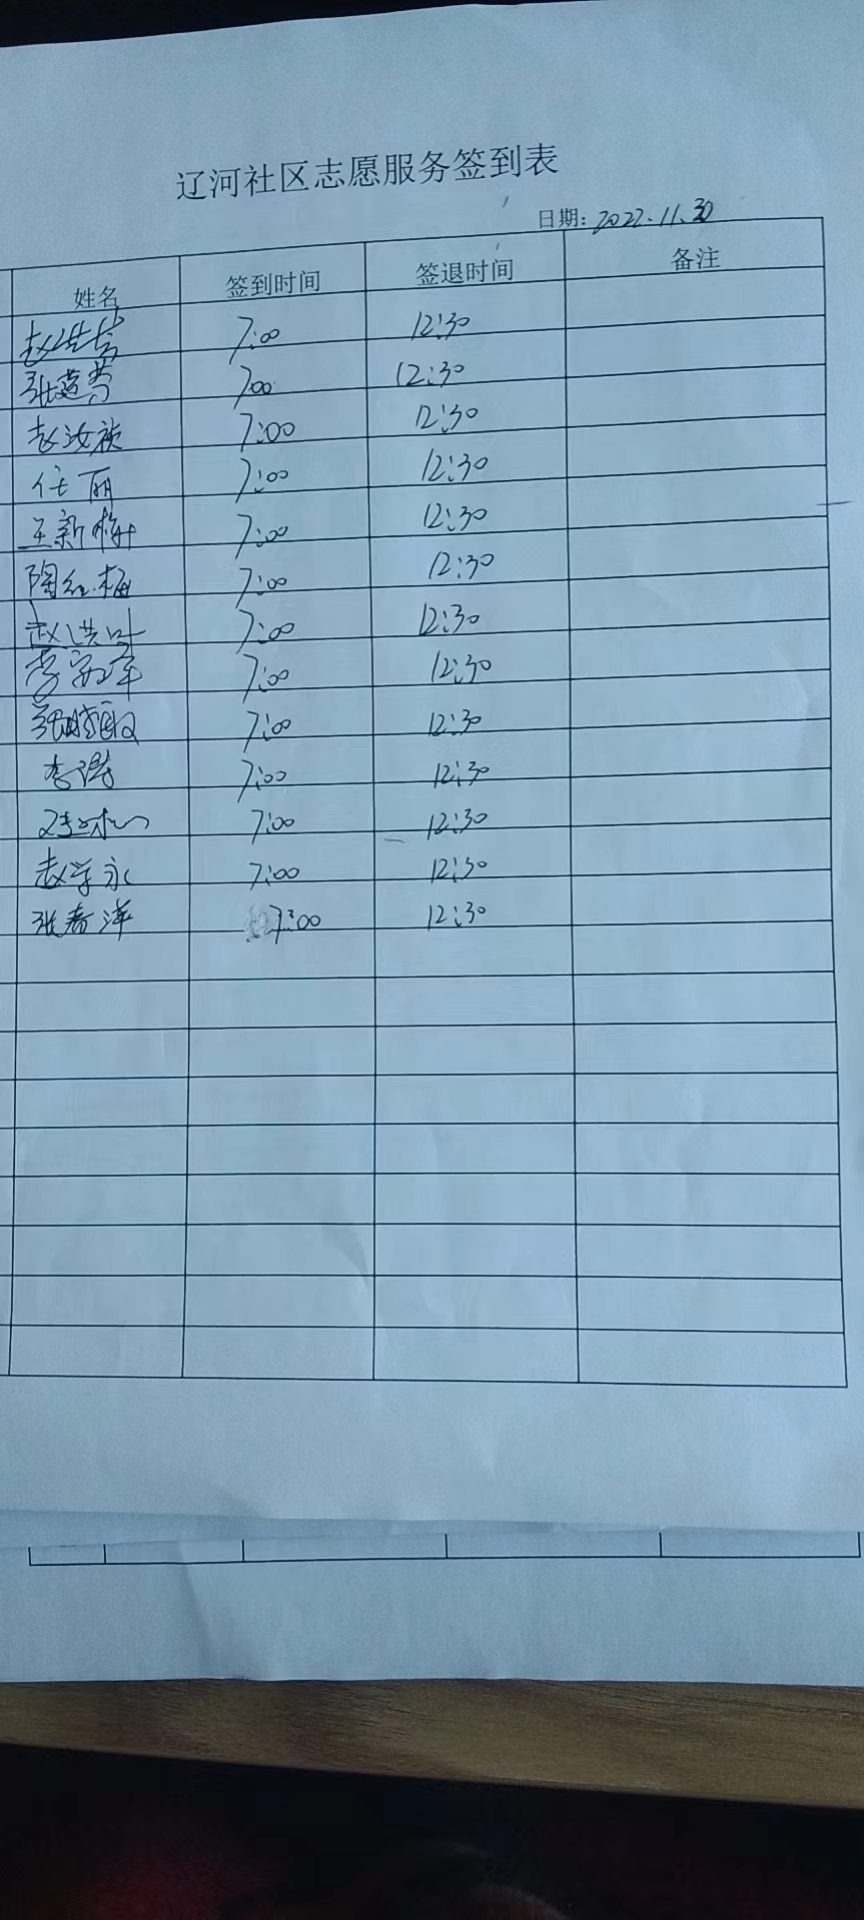 辽河社区志愿服务签到表
日期: 2022.11.30
姓名 签到时间 签退时间 备注
7:00 12:30
7:00 12:30
赵汝祯 7:00 12:30
任丽 7:00 12:30
王新梅 7:00 12:30
陶红梅 7:00 12:30
赵洪叶 7:00 12:30
7:00 12:30
7:00 12:30
李强 7:00 12:30
7:00 12:30
赵学永 7:00 12:30
张春洋 7:00 12:30